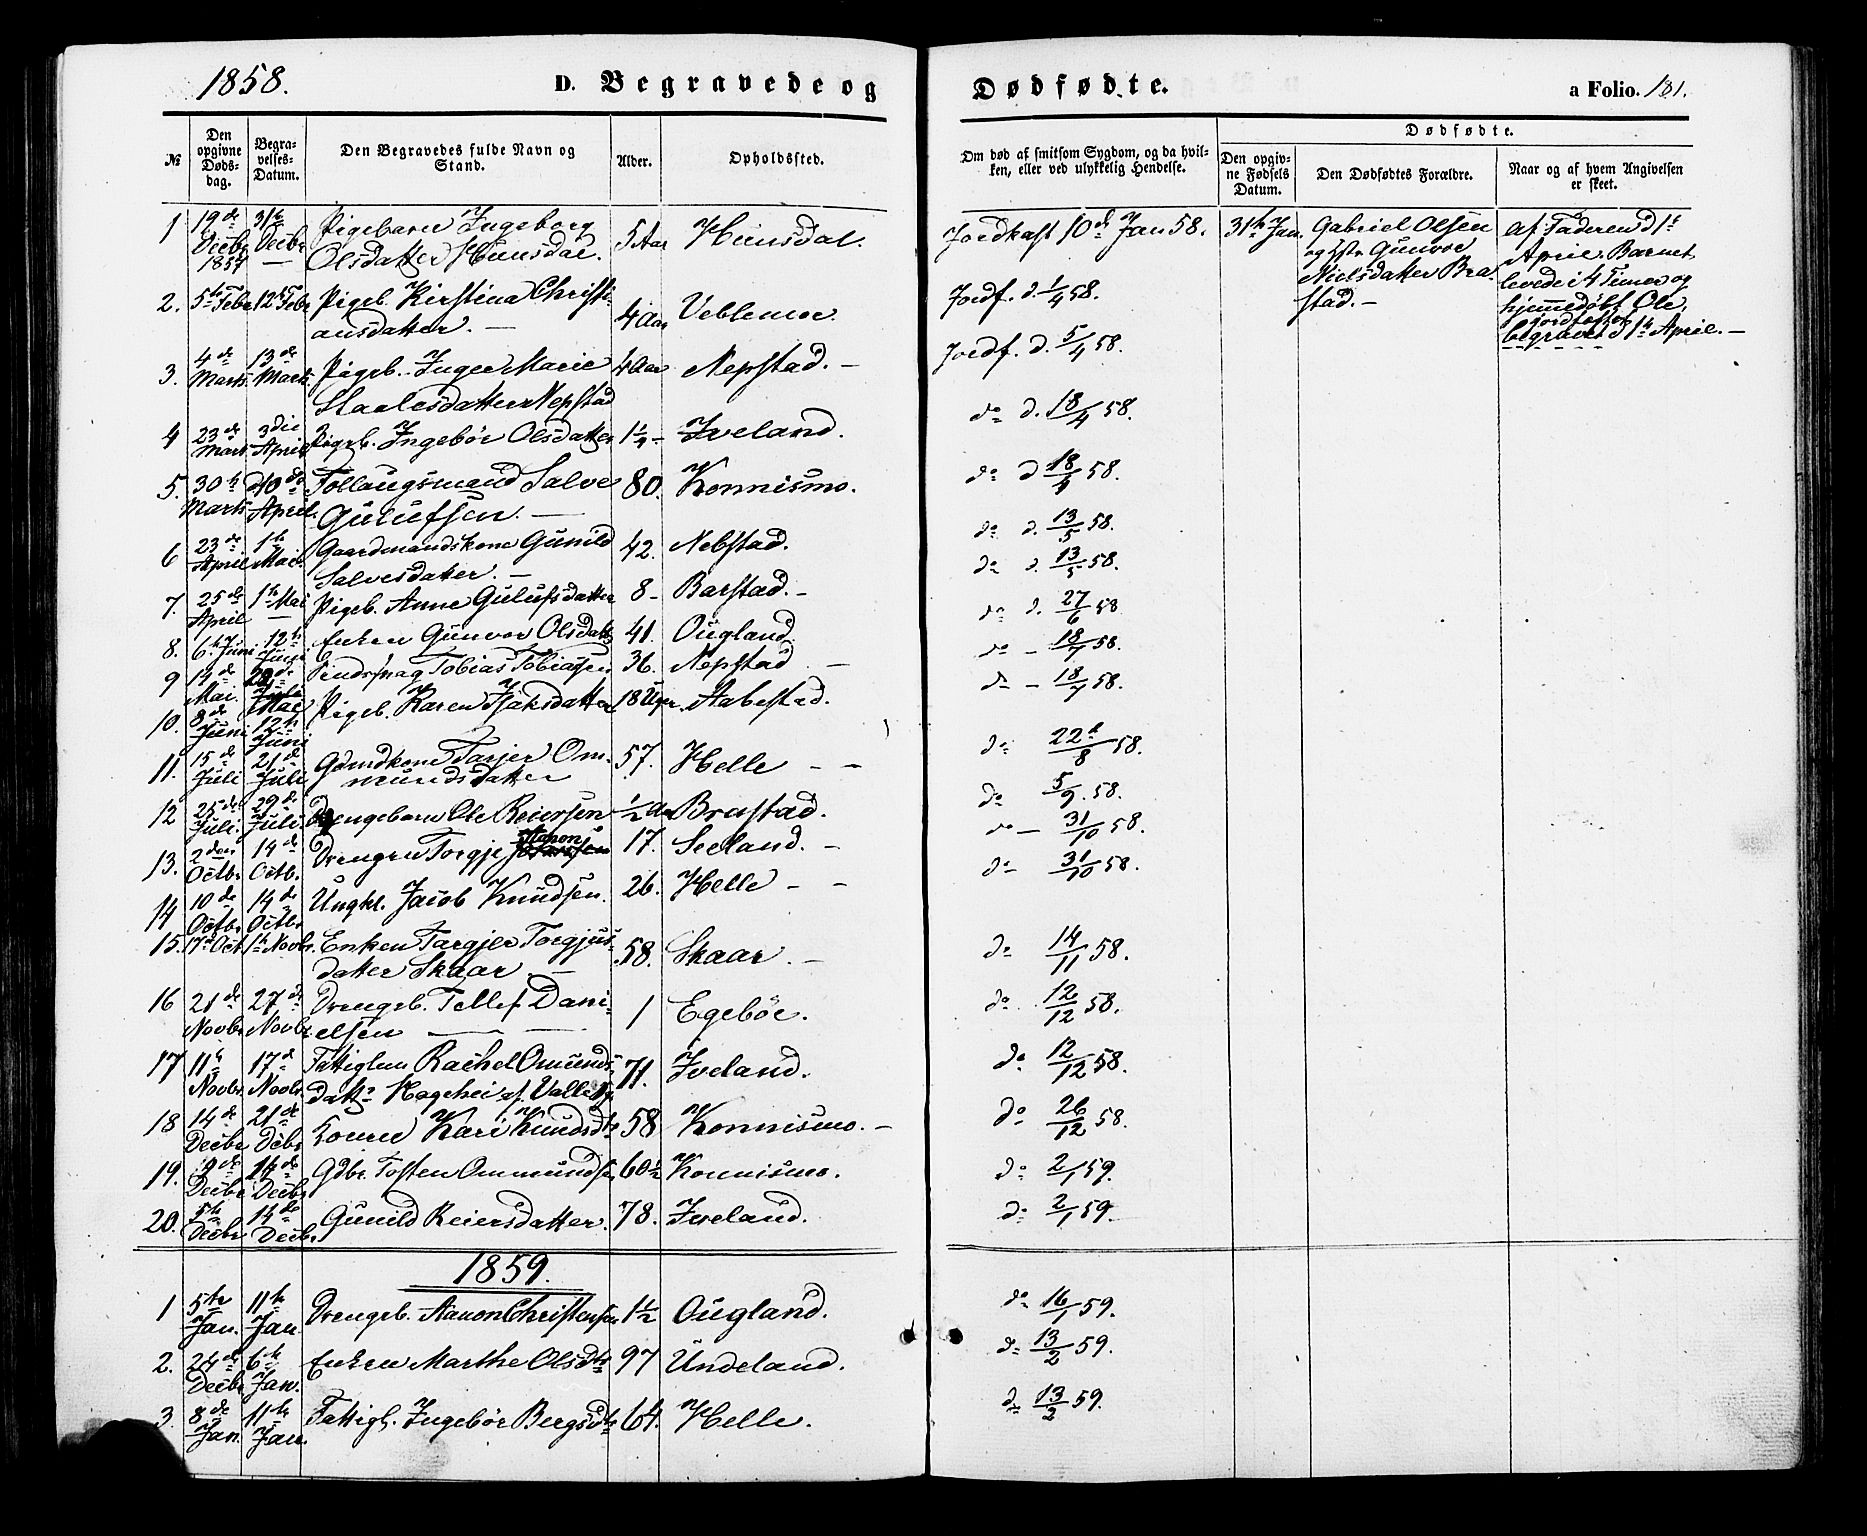 1858. D. Begravede og Dødfødte. a Folio. 131.
№ Den opgivne Døds-dag. Begra-velses-Datum. Den Begravedes fulde Navn og Stand. Alder. Opholdssted. Om død af smitsom Sygdom, og da hvil-ken, eller ved ulykkelig Hendelse. Dødfødte. Den opgiv-ne Fødsels Datum. Den Dødfødtes Forældre. Naar og af hvem Angivelsen er skeet.
1 19de Decbr 1857 31te Decbr Pigebarn Ingeborg Olsdatter Hunsdal. 5 Aar Hunsdal. Jordkast 10de Jan 58.
31te Jan. Gabriel Olsen og Hstr Gunvor Nielsdatter Brastad. –
af Faderen d 1te April. Barnet levede i 4 Timer og hjemmedøbt Ole, jordfæstet begravet d 1te April. –
2. 5te Febr 12te Febr Pigeb. Kirstina Christiansdatter. – 4 Aar Veblemoe Jordf. d. 1/4 58.
3. 4de Marts 13de Marts Pigeb. Inger Marie Staalesdatter Nepstad 4 Aar Nepstad. – Jordf. d. 5/4 58.
4 23de Marts 3die April Pigeb. Ingebör Olsdatter 1 1/4 – Iveland. do d. 18/4 58.
5. 30te Marts d 10de April. Follaugsmand Salve Gulufsen. – 80. Konnismo. do d 18/4 58.
6 23de April 1te Mai Gaardmandskone Gunild Salvesdatter. – 42. Nebstad. do d. 13/5 58.
7. 25de April 1te Mai Pigeb. Anne Gulufsdatter 8 – Barstad. – do d. 13/5 58.
8. 6te Juni 12te Juni Enken Gunvor Olsdatt 41. Ougland. do d. 27/6 58
9 14de Mai. Mai Tobias Tobiassen 36. Nepstad – do – 18/7 58.
10. 8de Juni 12te Juni Pigeb. Karen Isaksdatter 18 Uger. Aabestad. do – 18/7 58.
11. 15de Juli 21de Juli Gdmdkone Tarjer Ommundsdatter 57. Helle – – do 22de/8 58.
12 25de Juli. 29de Juli. Drengebarn Ole Reiersen 1/2 Aar Brastad. do 5/9. 58.
13. 2den Octbr 14de Octb. Drengen Torgje Aanonsen 17. Seeland. – do – 31/10 58.
14 10de Octbr 14de Octbr Ungkl. Jacob Knudsen. 26. Helle – – do – 31/10 58.
15. 17de Oct. 1te Novbr. Enken Targjer Torgjusdatter Skaar. – 58. Skaar. – do 14/11 58.
16 21de Novbr 27de Novbr. Drengeb. Tellef Danielsen – – 1 Egeböe. do 12/12 58.
17 11te Novbr. 17de Novbr. Fattiglem Rachel Omundsdattr Hagehei af Valle 71. Iveland. do 12/12 58.
18 14de Decbr 21de Decbr Konen Kari Knudsdtr 58 Konnismo. – do 26/12 58.
19. 9de Decbr 14de Decbr Gdbr. Tosten Ommundsen 60 1/2 Konnismo. do 2/1 59.
20. 5te Decbr 14de Decbr. Gunild Reiersdatter. 78. Iveland. do 2/1 59.
1859.
1 5te Jan. 11te Jan Drengeb. Aanon Christensen 1 1/2 Ougland. do 16/1 59.
2. 24de Decbr 6te Jan. Enken Marthe Olsdtr 97 Undeland. do 13/2 59.
3. 8de Jan. 11te Jan. Fattigl. Ingebör Bergsdtr 64. Helle. do 13/2 59.